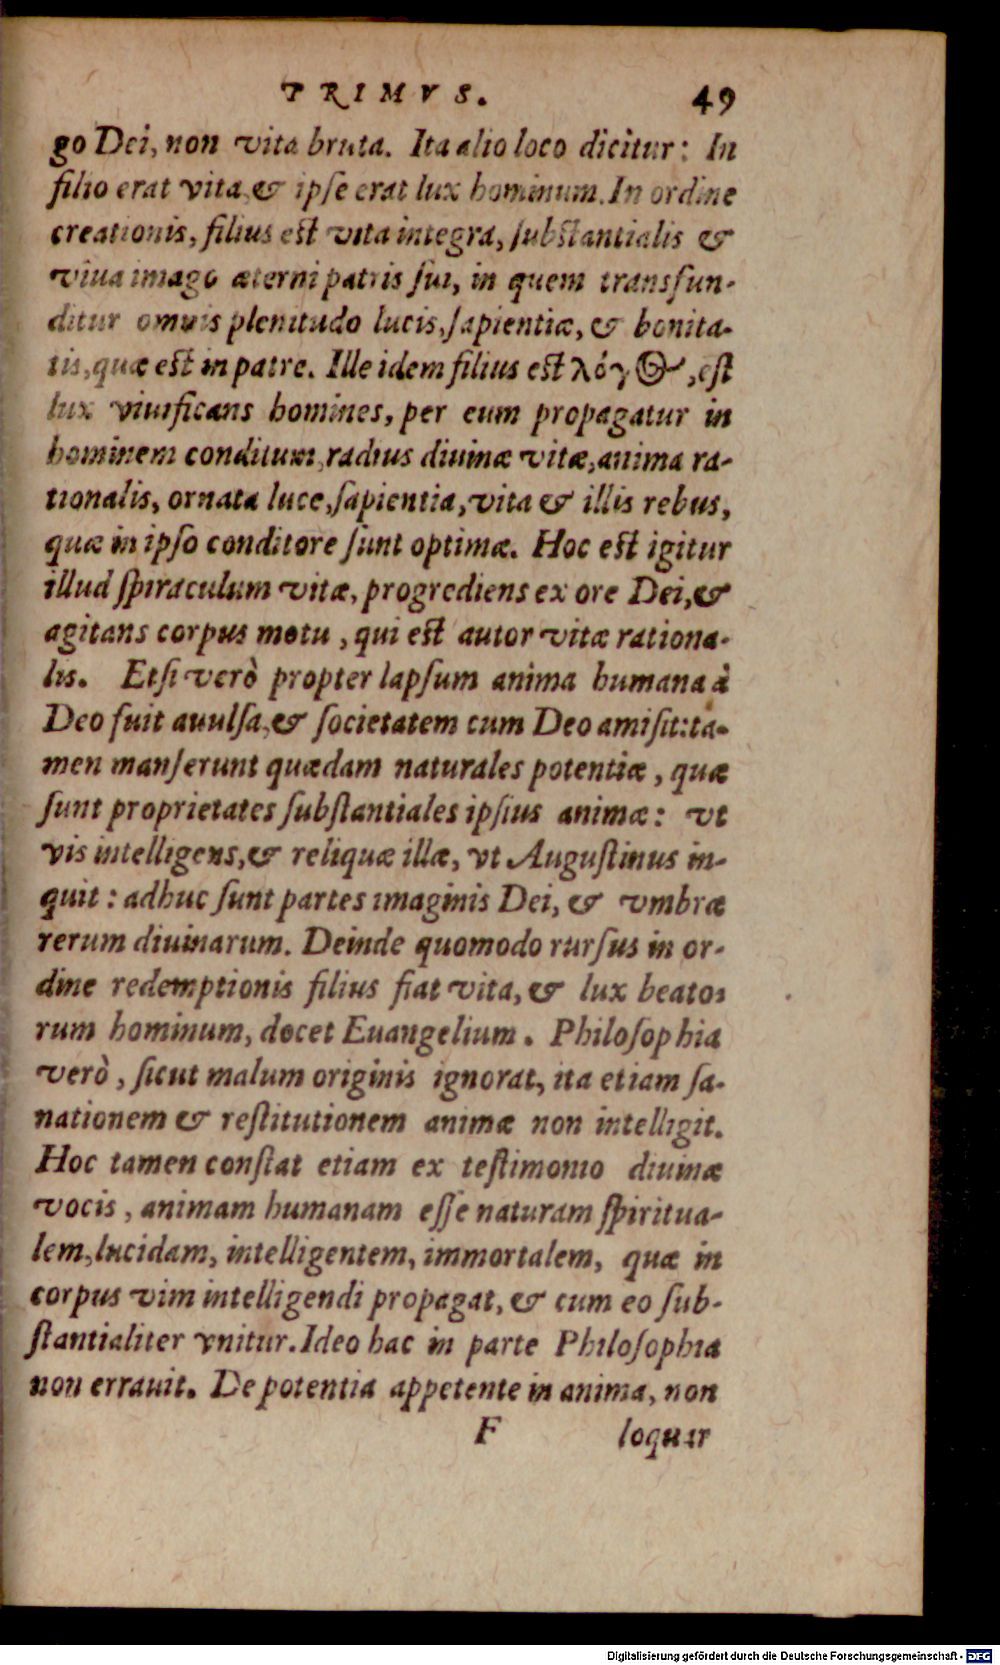 PRIMVS. 49
go Dei, non vita bruta. Ita alio loco dicitur: In
filio erat vita, & ipſe erat lux hominum. In ordine
creationis, filius eſt vita integra, ſubſtantialis &
viua imago æterni patris ſui, in quem transfun-
ditur omnis plenitudo lucis, ſapientiæ, & bonita-
tis, quæ eſt in patre. Ille idem filius eſt λόγος, eſt
lux viuificans homines, per eum propagatur in
hominem conditum, radius diuinæ vitæ, anima ra-
tionalis, ornata luce, ſapientia, vita & illis rebus,
quæ in ipſo conditore ſunt optimæ. Hoc eſt igitur
illud ſpiraculum vitæ, progrediens ex ore Dei, &
agitans corpus motu, qui eſt autor vitæ rationa-
lis. Etſi verò propter lapſum anima humana à
Deo fuit auulſa, & ſocietatem cum Deo amiſit: ta-
men manſerunt quædam naturales potentiæ, quæ
ſunt proprietates ſubſtantiales ipſius animæ: vt
vis intelligens, & reliquæ illæ, vt Auguſtinus in-
quit: adhuc ſunt partes imaginis Dei, & vmbræ
rerum diuinarum. Deinde quomodo rurſus in or-
dine redemptionis filius fiat vita, & lux beato-
rum hominum, docet Euangelium. Philoſophia
verò, ſicut malum originis ignorat, ita etiam ſa-
nationem & reſtitutionem animæ non intelligit.
Hoc tamen conſtat etiam ex teſtimonio diuinæ
vocis, animam humanam eſſe naturam ſpiritua-
lem, lucidam, intelligentem, immortalem, quæ in
corpus vim intelligendi propagat, & cum eo ſub-
ſtantialiter vnitur. Ideo hac in parte Philoſophia
non errauit. De potentia appetente in anima, non
F loquar
Digitalisierung gefördert durch die Deutsche Forschungsgemeinschaft - DFG